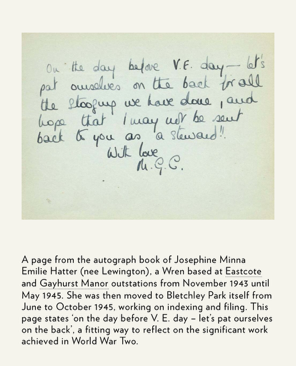 On the day before V.E. day — let's
pat ourselves on the back for all
the stooging we have done, and
hope that I may not be sent
back to you as a steward!!
With love
M.G.C.
A page from the autograph book of Josephine Minna
Emilie Hatter (nee Lewington), a Wren based at Eastcote
and Gayhurst Manor outstations from November 1943 until
May 1945. She was then moved to Bletchley Park itself from
June to October 1945, working on indexing and filing. This
page states 'on the day before V. E. day – let's pat ourselves
on the back', a fitting way to reflect on the significant work
achieved in World War Two.